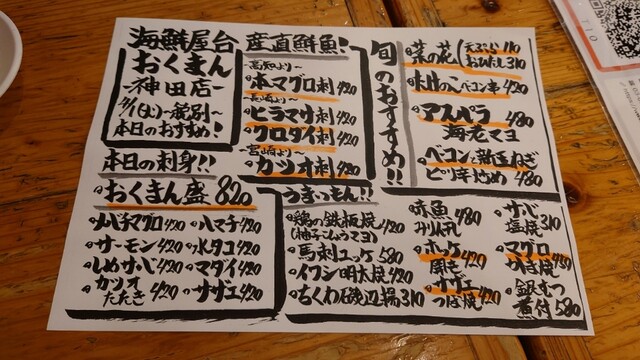 海鮮屋台
おくまん
-神田店-
3/1(火)~税別~
本日のおすすめ!
産直鮮魚!
~高知より~
本マグロ刺 420
~長崎より~
ヒラマサ刺 420
クロダイ刺 420
~宮崎より~
カツオ刺 420
旬のおすすめ!!
菜の花 天ぷら 110
おひたし 310
たけのこベーコン串 420
アスパラ
海老マヨ
ベーコンと新玉ねぎ
ピリ辛炒め 480
本日の刺身!!
おくまん盛 820
バチマグロ 420
サーモン 420
しめサバ 420
カツオ
たたき 420
ハマチ 420
水タコ 420
マダイ 420
サザエ 420
うまいもん!!
鶏の鉄板焼 420
(柚子こしょうマヨ)
馬刺ユッケ 580
イワシ明太焼 420
ちくわ磯辺揚 310
赤魚 480
みりん干し
ホッケ 420
開き
サザエ 420
つぼ焼
サバ 310
塩焼
マグロ 420
かま焼
銀むつ 580
煮付